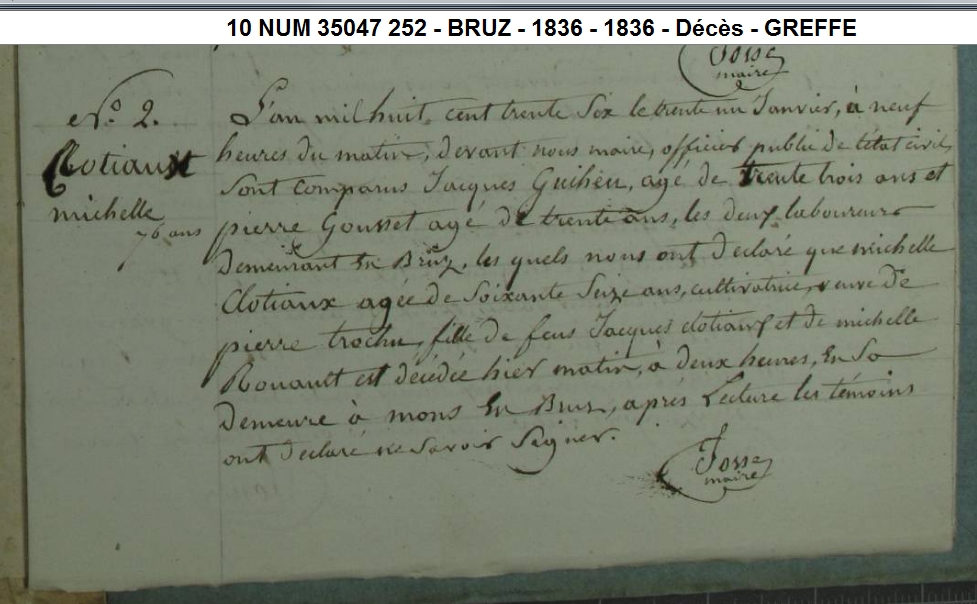 10 NUM 35047 252 - BRUZ - 1836 - 1836 - Décès - GREFFE
Josse
maire
N.o 2.
Clotiaux
michelle
76 ans
L'an mil huit cent trente Six le trente un Janvier, à neuf
heures du matin, devant nous maire, officier public de l'état civil,
Sont Comparus Jacques Guiheu, agé de trente trois ans et
pierre Gousset agé de trente ans, les deux laboureurs
demeurant En Bruz, les quels nous ont declaré que michelle
Clotiaux agée de Soixante Seize ans, cultivatrice, veuve de
pierre trochu, fille de feus Jacques clotiaux et de michelle
Rouault est décédée hier matin, à deux heures, En Sa
demeure à mons En Bruz, après Lecture les témoins
ont declaré ne Savoir Signer.
Josse
maire